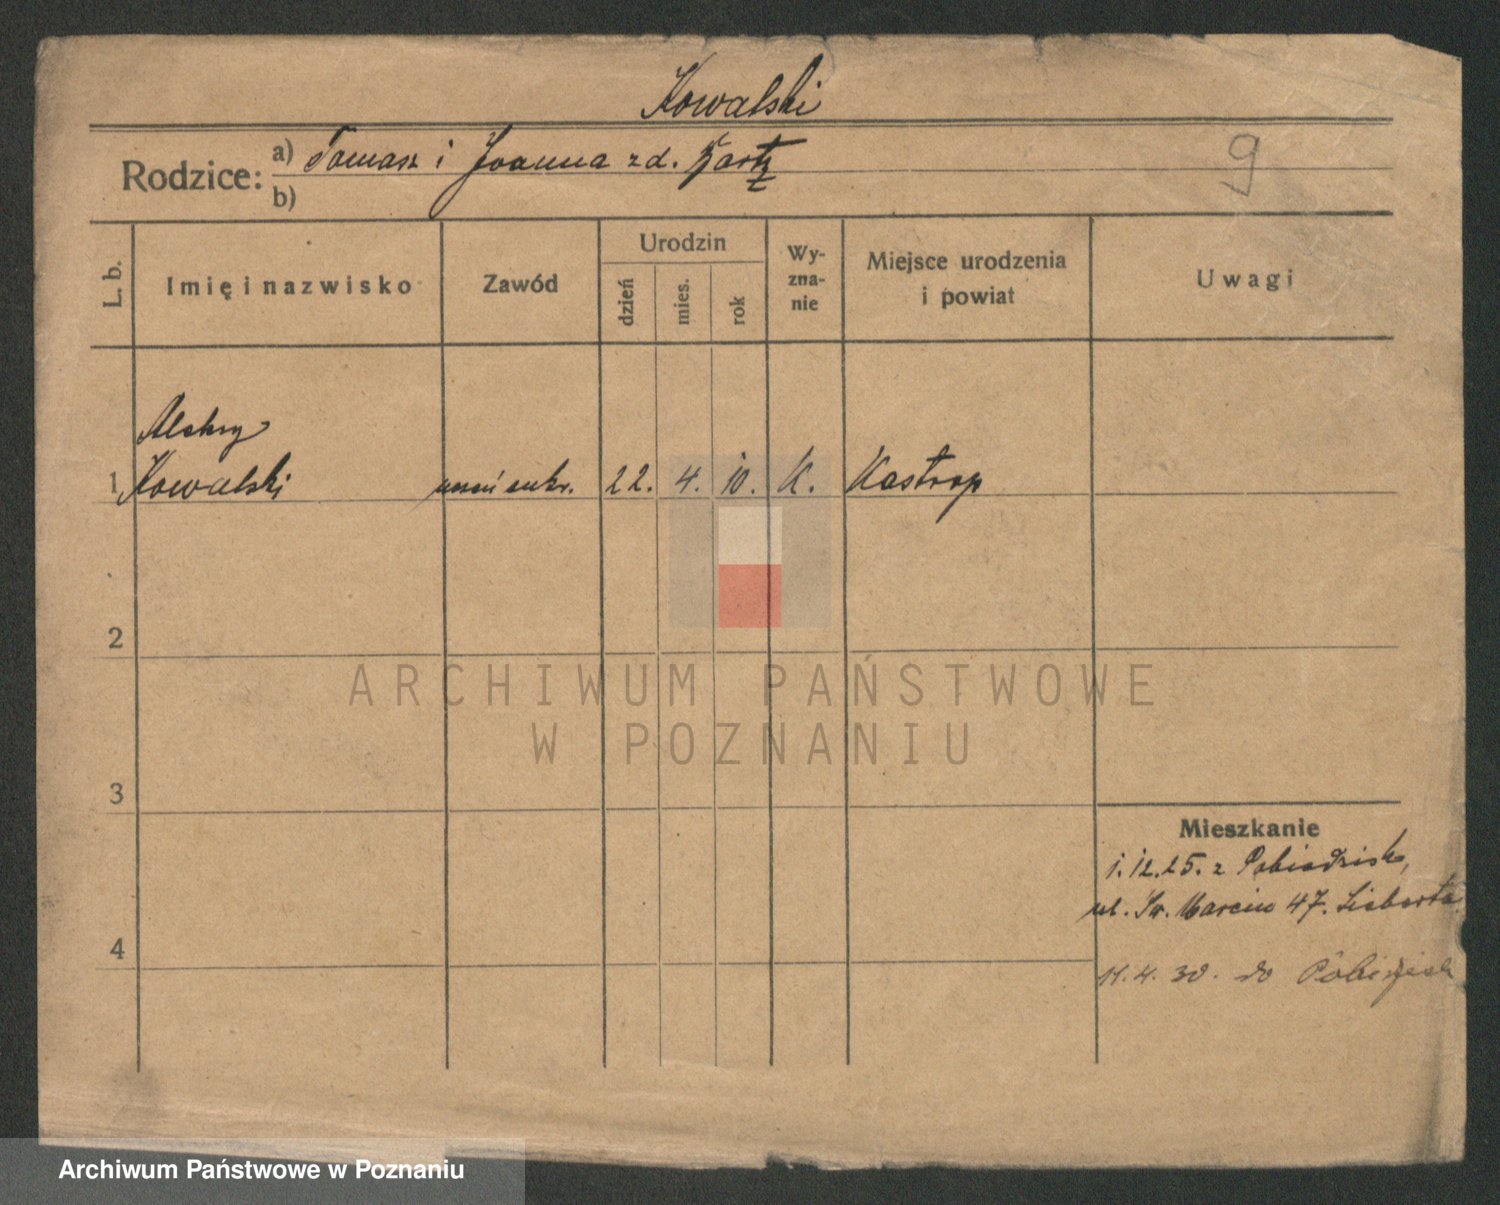 Kowalski
Rodzice: a) Tomasz i Joanna zd. Kartz
b)
9
L. b.
Imię i nazwisko
Zawód
Urodzin
dzień
mies.
rok
Wy-
zna-
nie
Miejsce urodzenia
i powiat
Uwagi
Aleksy
1 Kowalski uczeń cukr. 22. 4. 10. K. Kastrop
2
3
4
Mieszkanie
1.12.25. z Pobiedzisk,
ul. Św. Marcin 47.
11.4.30. do Pobiedzisk
ARCHIWUM PAŃSTWOWE
W POZNANIU
Archiwum Państwowe w Poznaniu